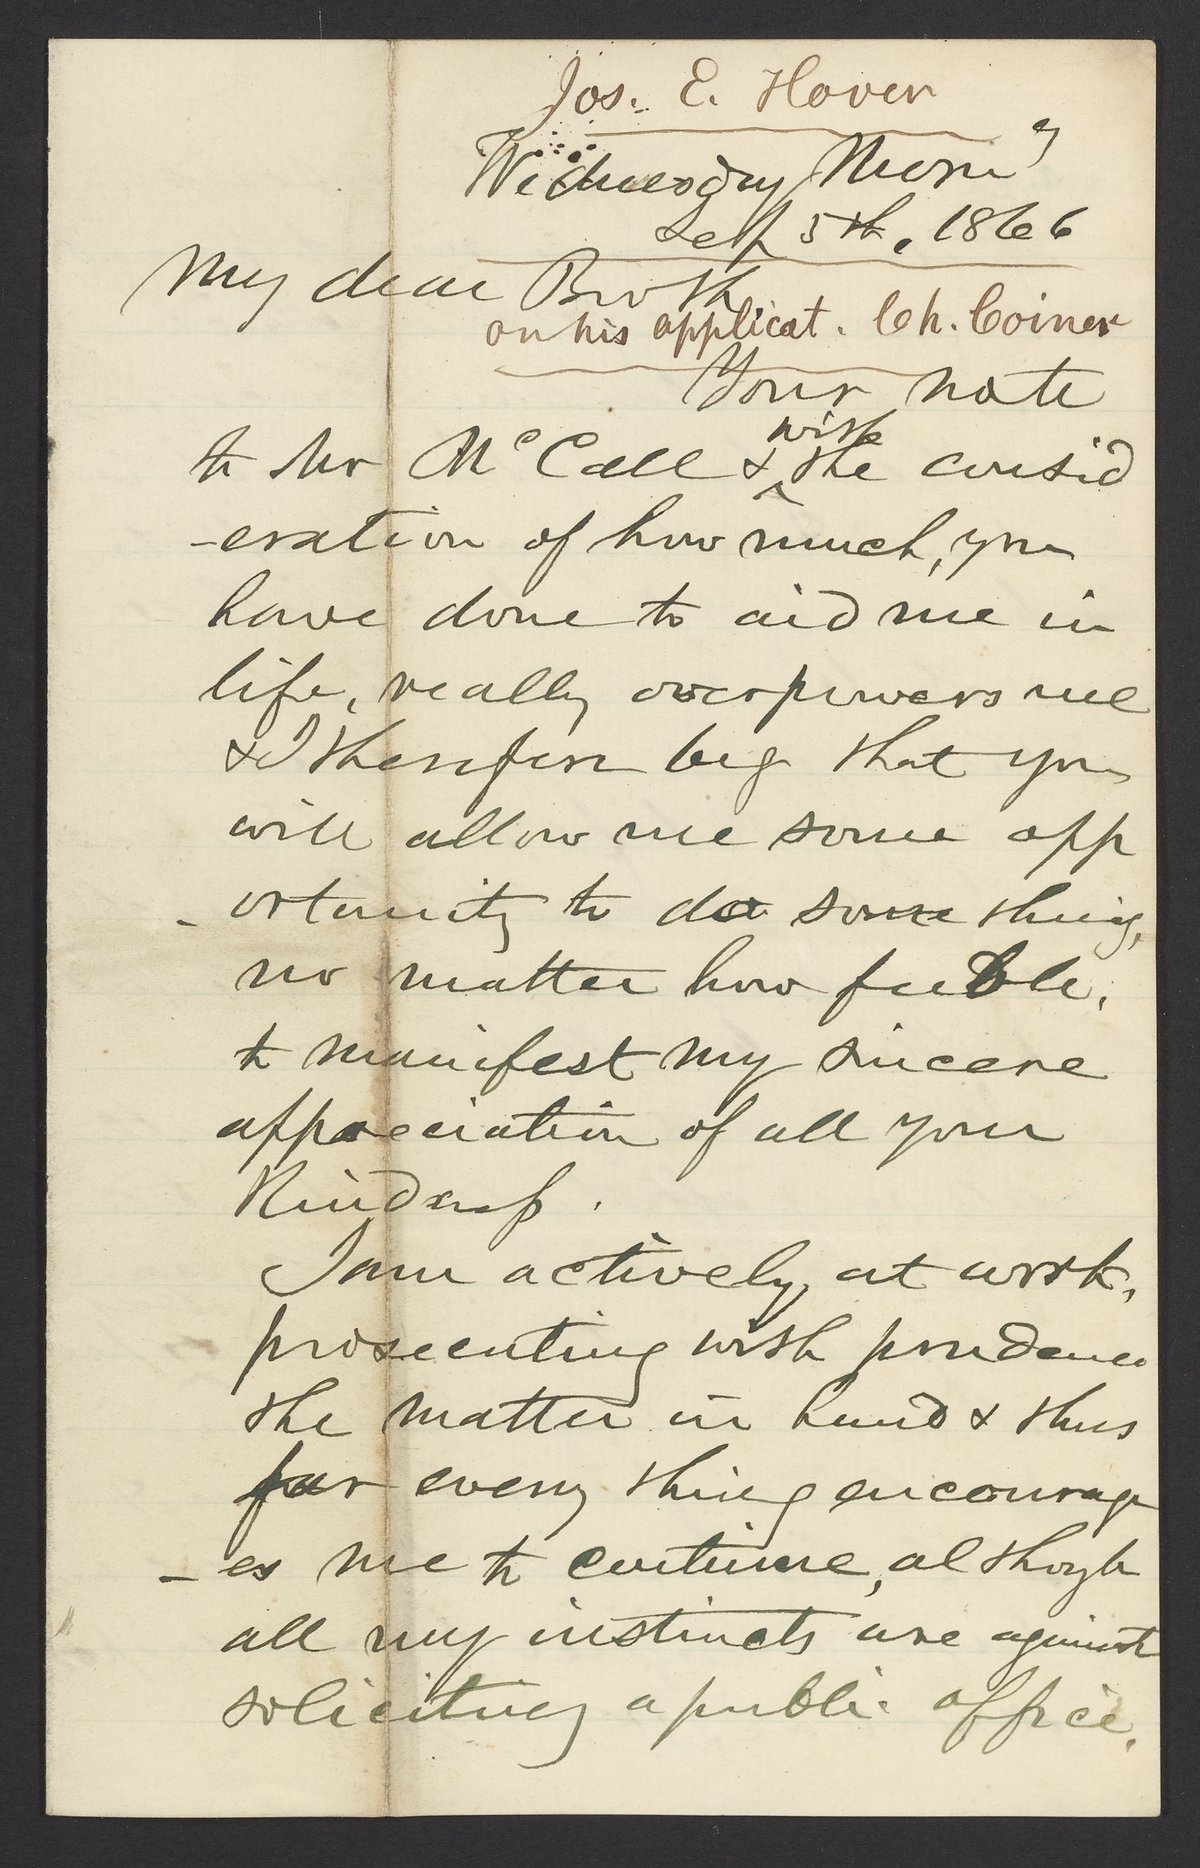 Jos. E. Hover
Wednesday Morng
Sep 5th, 1866
My dear Broth
on his applicat. Ch. Coiner
Your note
to Mr McCall & with the consid
-eration of how much, you
have done to aid me in
life, really overpowers me
& I therefore beg that you
will allow me some opp
-ortunity to do some thing,
no matter how feeble,
to manifest my sincere
appreciation of all your
Kindness.
I am actively, at work,
prosecuting with prudence
the matter in hand & thus
far every thing encourag
-es me to continue, although
all my instincts are against
soliciting a public office.